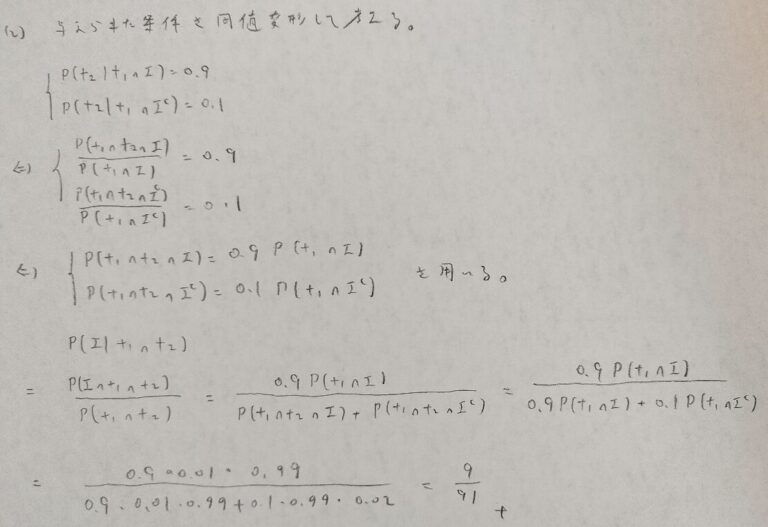 (2) 与えられた条件を同値変形して考える。
P(t₂|t₁∩I)=0.9
P(t₂|t₁∩Iᶜ)=0.1
⇔ P(t₁∩t₂∩I)/P(t₁∩I) = 0.9
P(t₁∩t₂∩Iᶜ)/P(t₁∩Iᶜ) = 0.1
⇔ P(t₁∩t₂∩I)=0.9 P(t₁∩I)
P(t₁∩t₂∩Iᶜ)=0.1 P(t₁∩Iᶜ) を用いる。
P(I|t₁∩t₂)
= P(I∩t₁∩t₂)/P(t₁∩t₂) = 0.9 P(t₁∩I)/(P(t₁∩t₂∩I)+P(t₁∩t₂∩Iᶜ)) = 0.9 P(t₁∩I)/(0.9P(t₁∩I)+0.1P(t₁∩Iᶜ))
= 0.9・0.01・0.99/(0.9・0.01・0.99+0.1・0.99・0.02) = 9/91